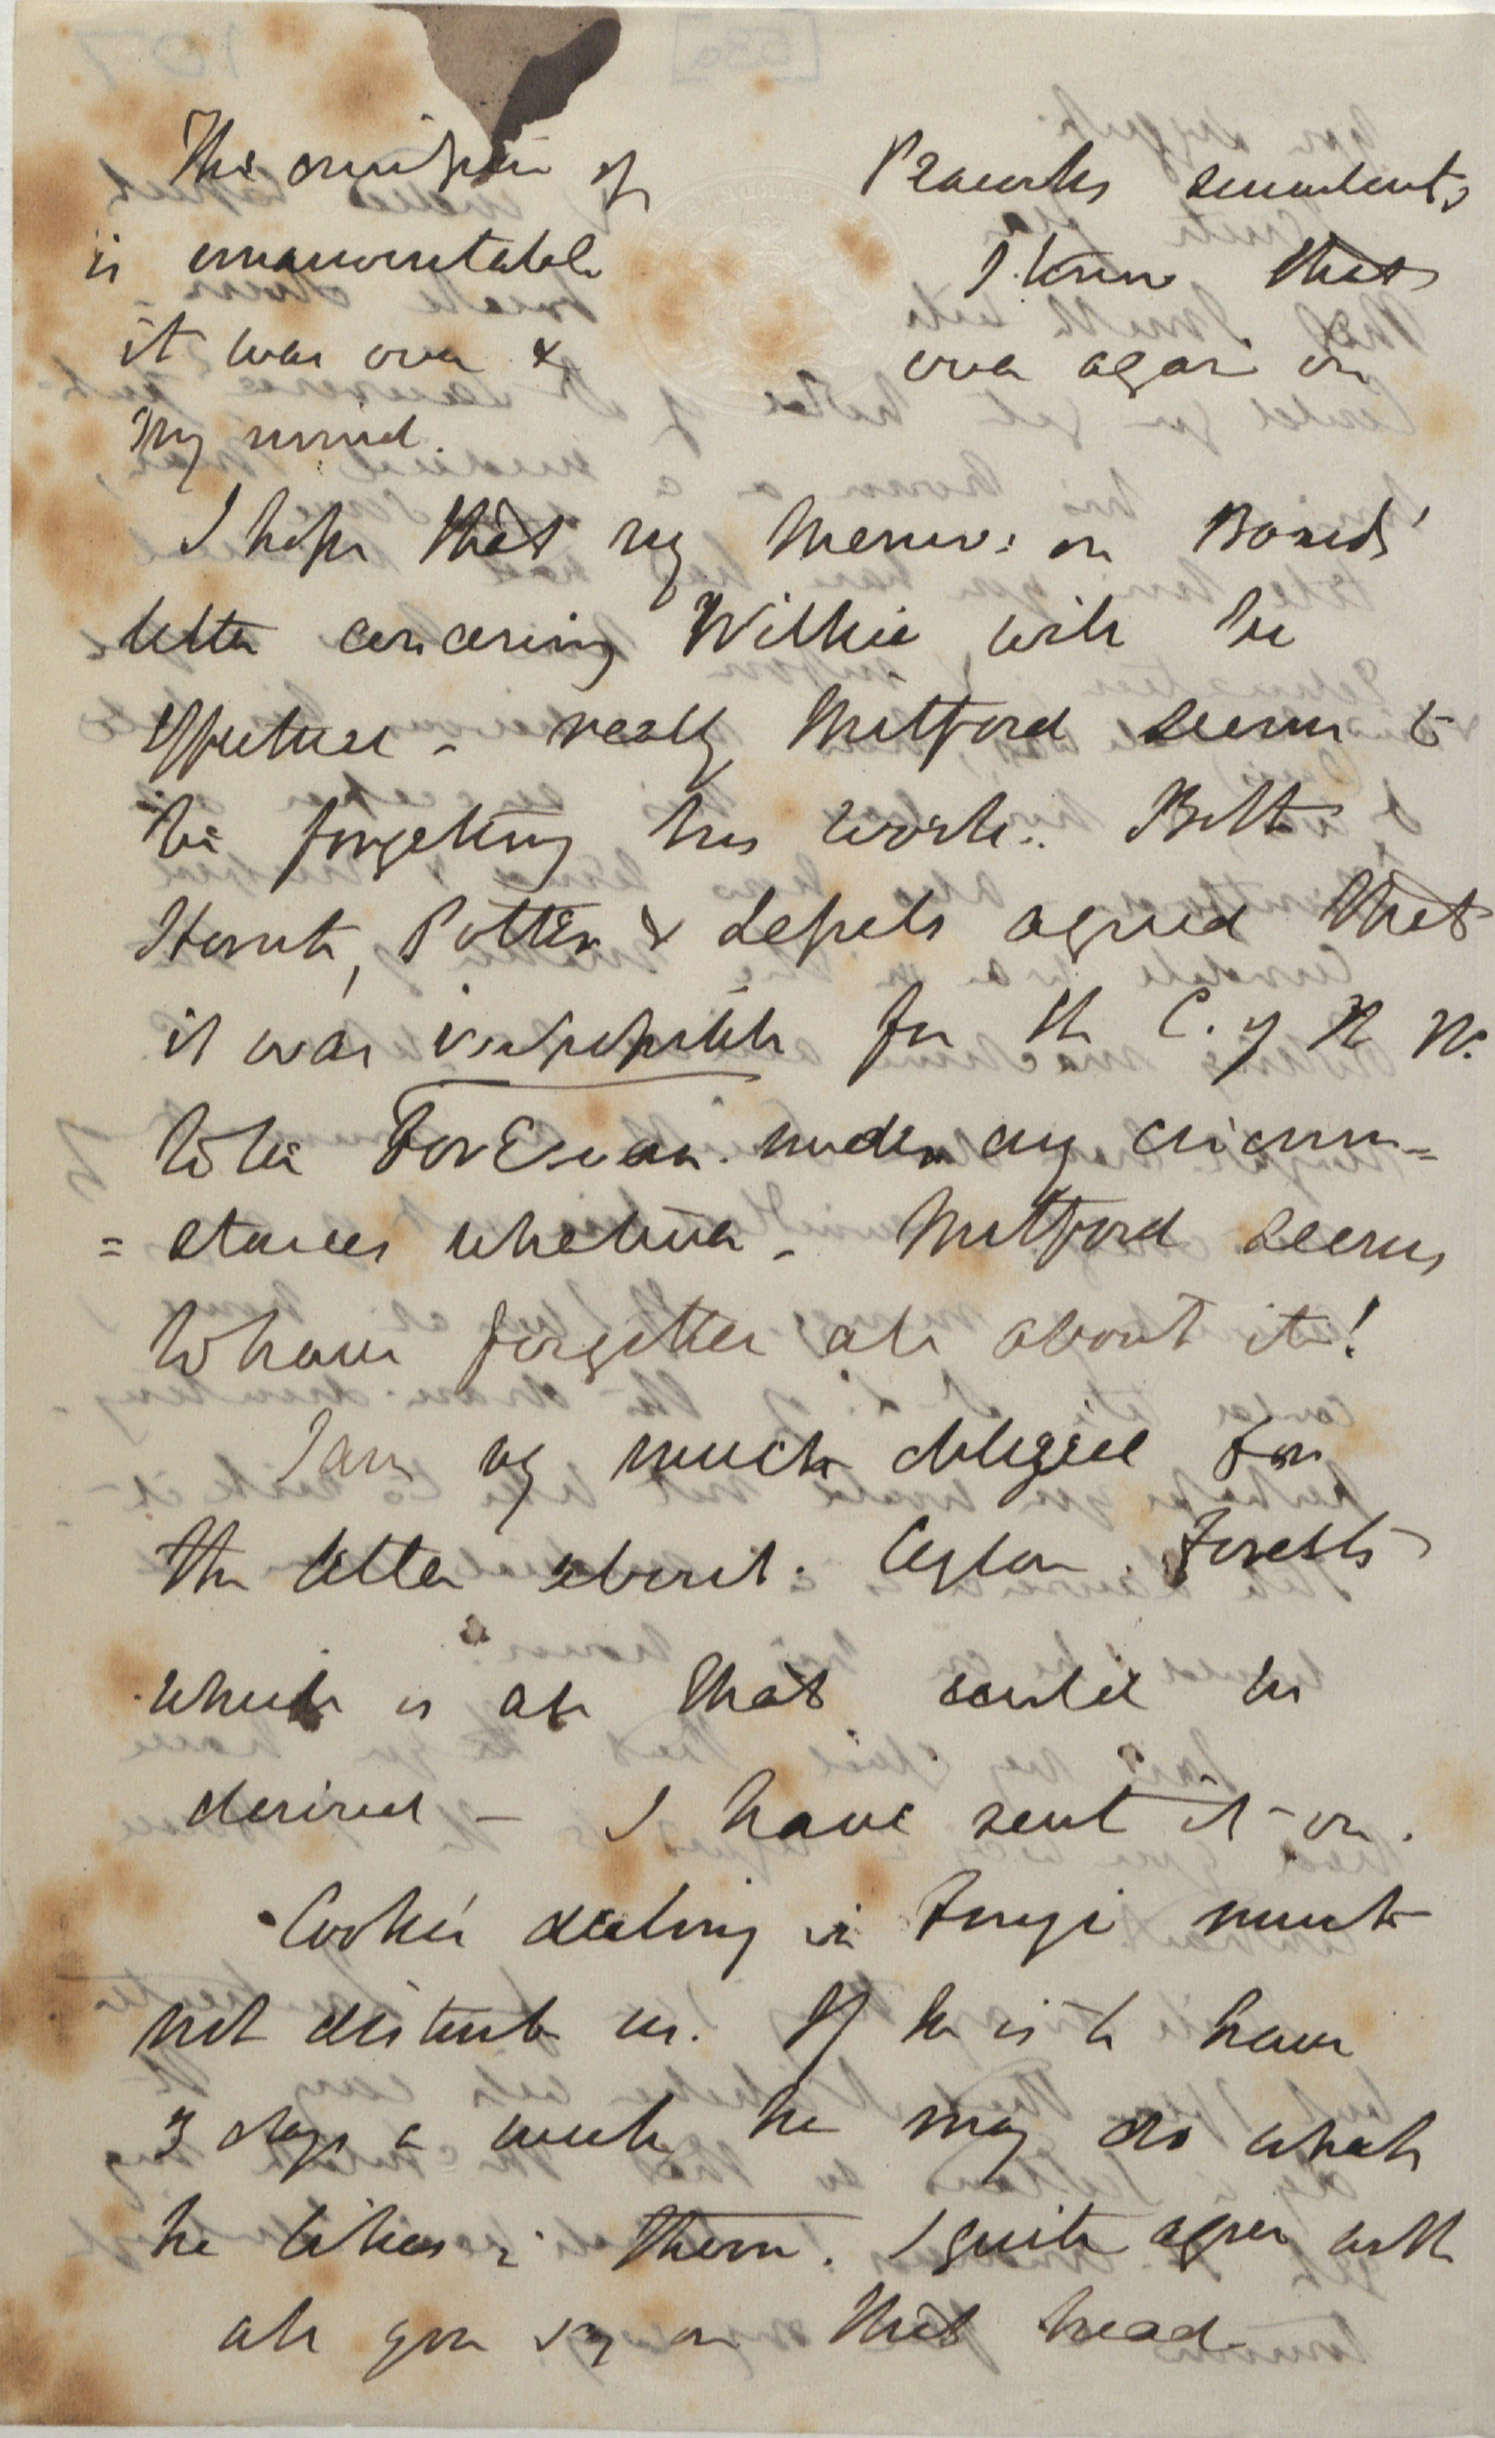 The omission of Peacock's succulents
is unaccountable I knew that
it was over & over again on
my mind.
I hope that my Memo: on Board's
letter concerning Wilkie will be
effectual - really Mitford seems to
be forgetting his work. Both
Hornt, Potter & agreed that
it was impossible for the C. of W.
to be Foreman under any circum=
=stances whatever - Mitford seems
to have forgotten all about it!
I am very much obliged for
the letter about Ceylon Forests
which is all that could be
desired - I have sent it on.
Cooke's dealing in Fungi must
not disturb us. If he is to have
3 days a week he may do what
he likes in them. I quite agree with
all you say on that head